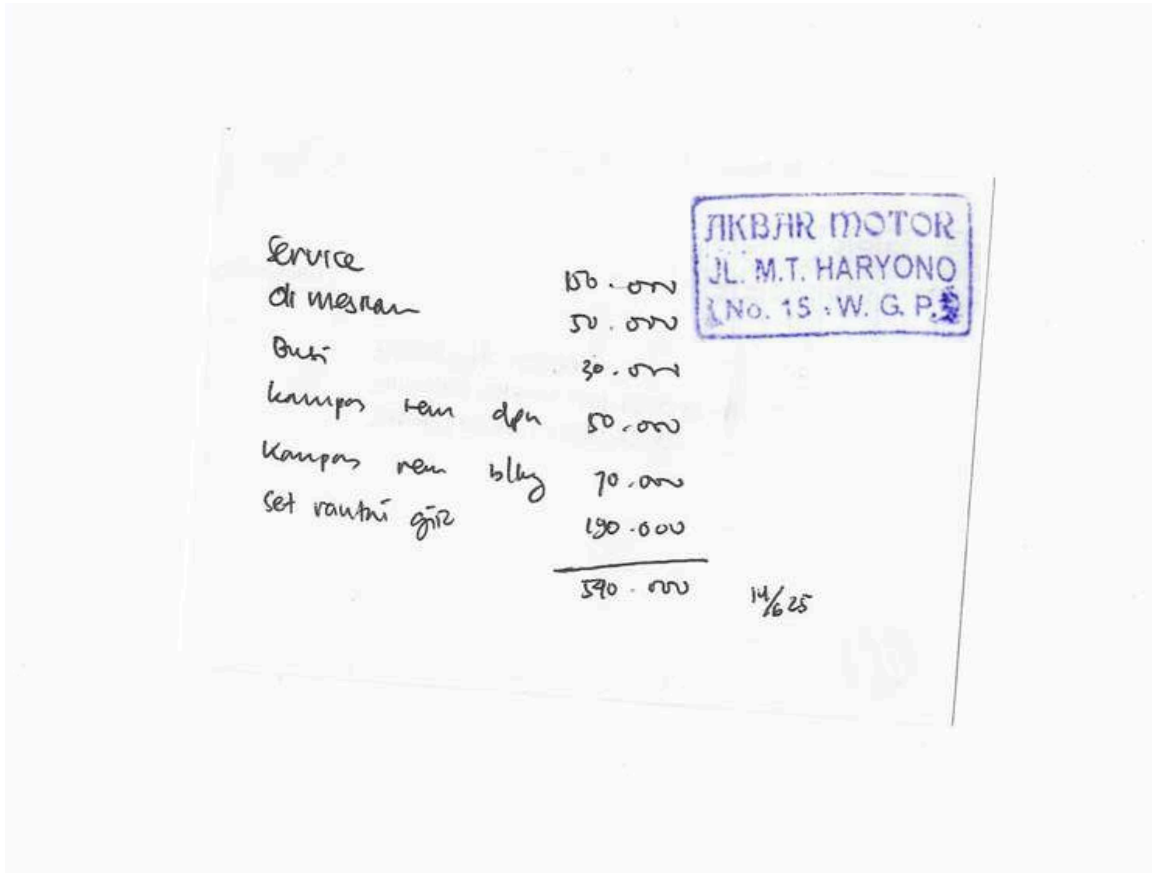 AKBAR MOTOR
JL. M.T. HARYONO
No. 15 . W. G. P.
Service 150.000
Oli mesran 50.000
Busi 30.000
kampas rem dpn 50.000
Kampas rem blkg 70.000
set rantai gir 190.000
540.000
14/6 25